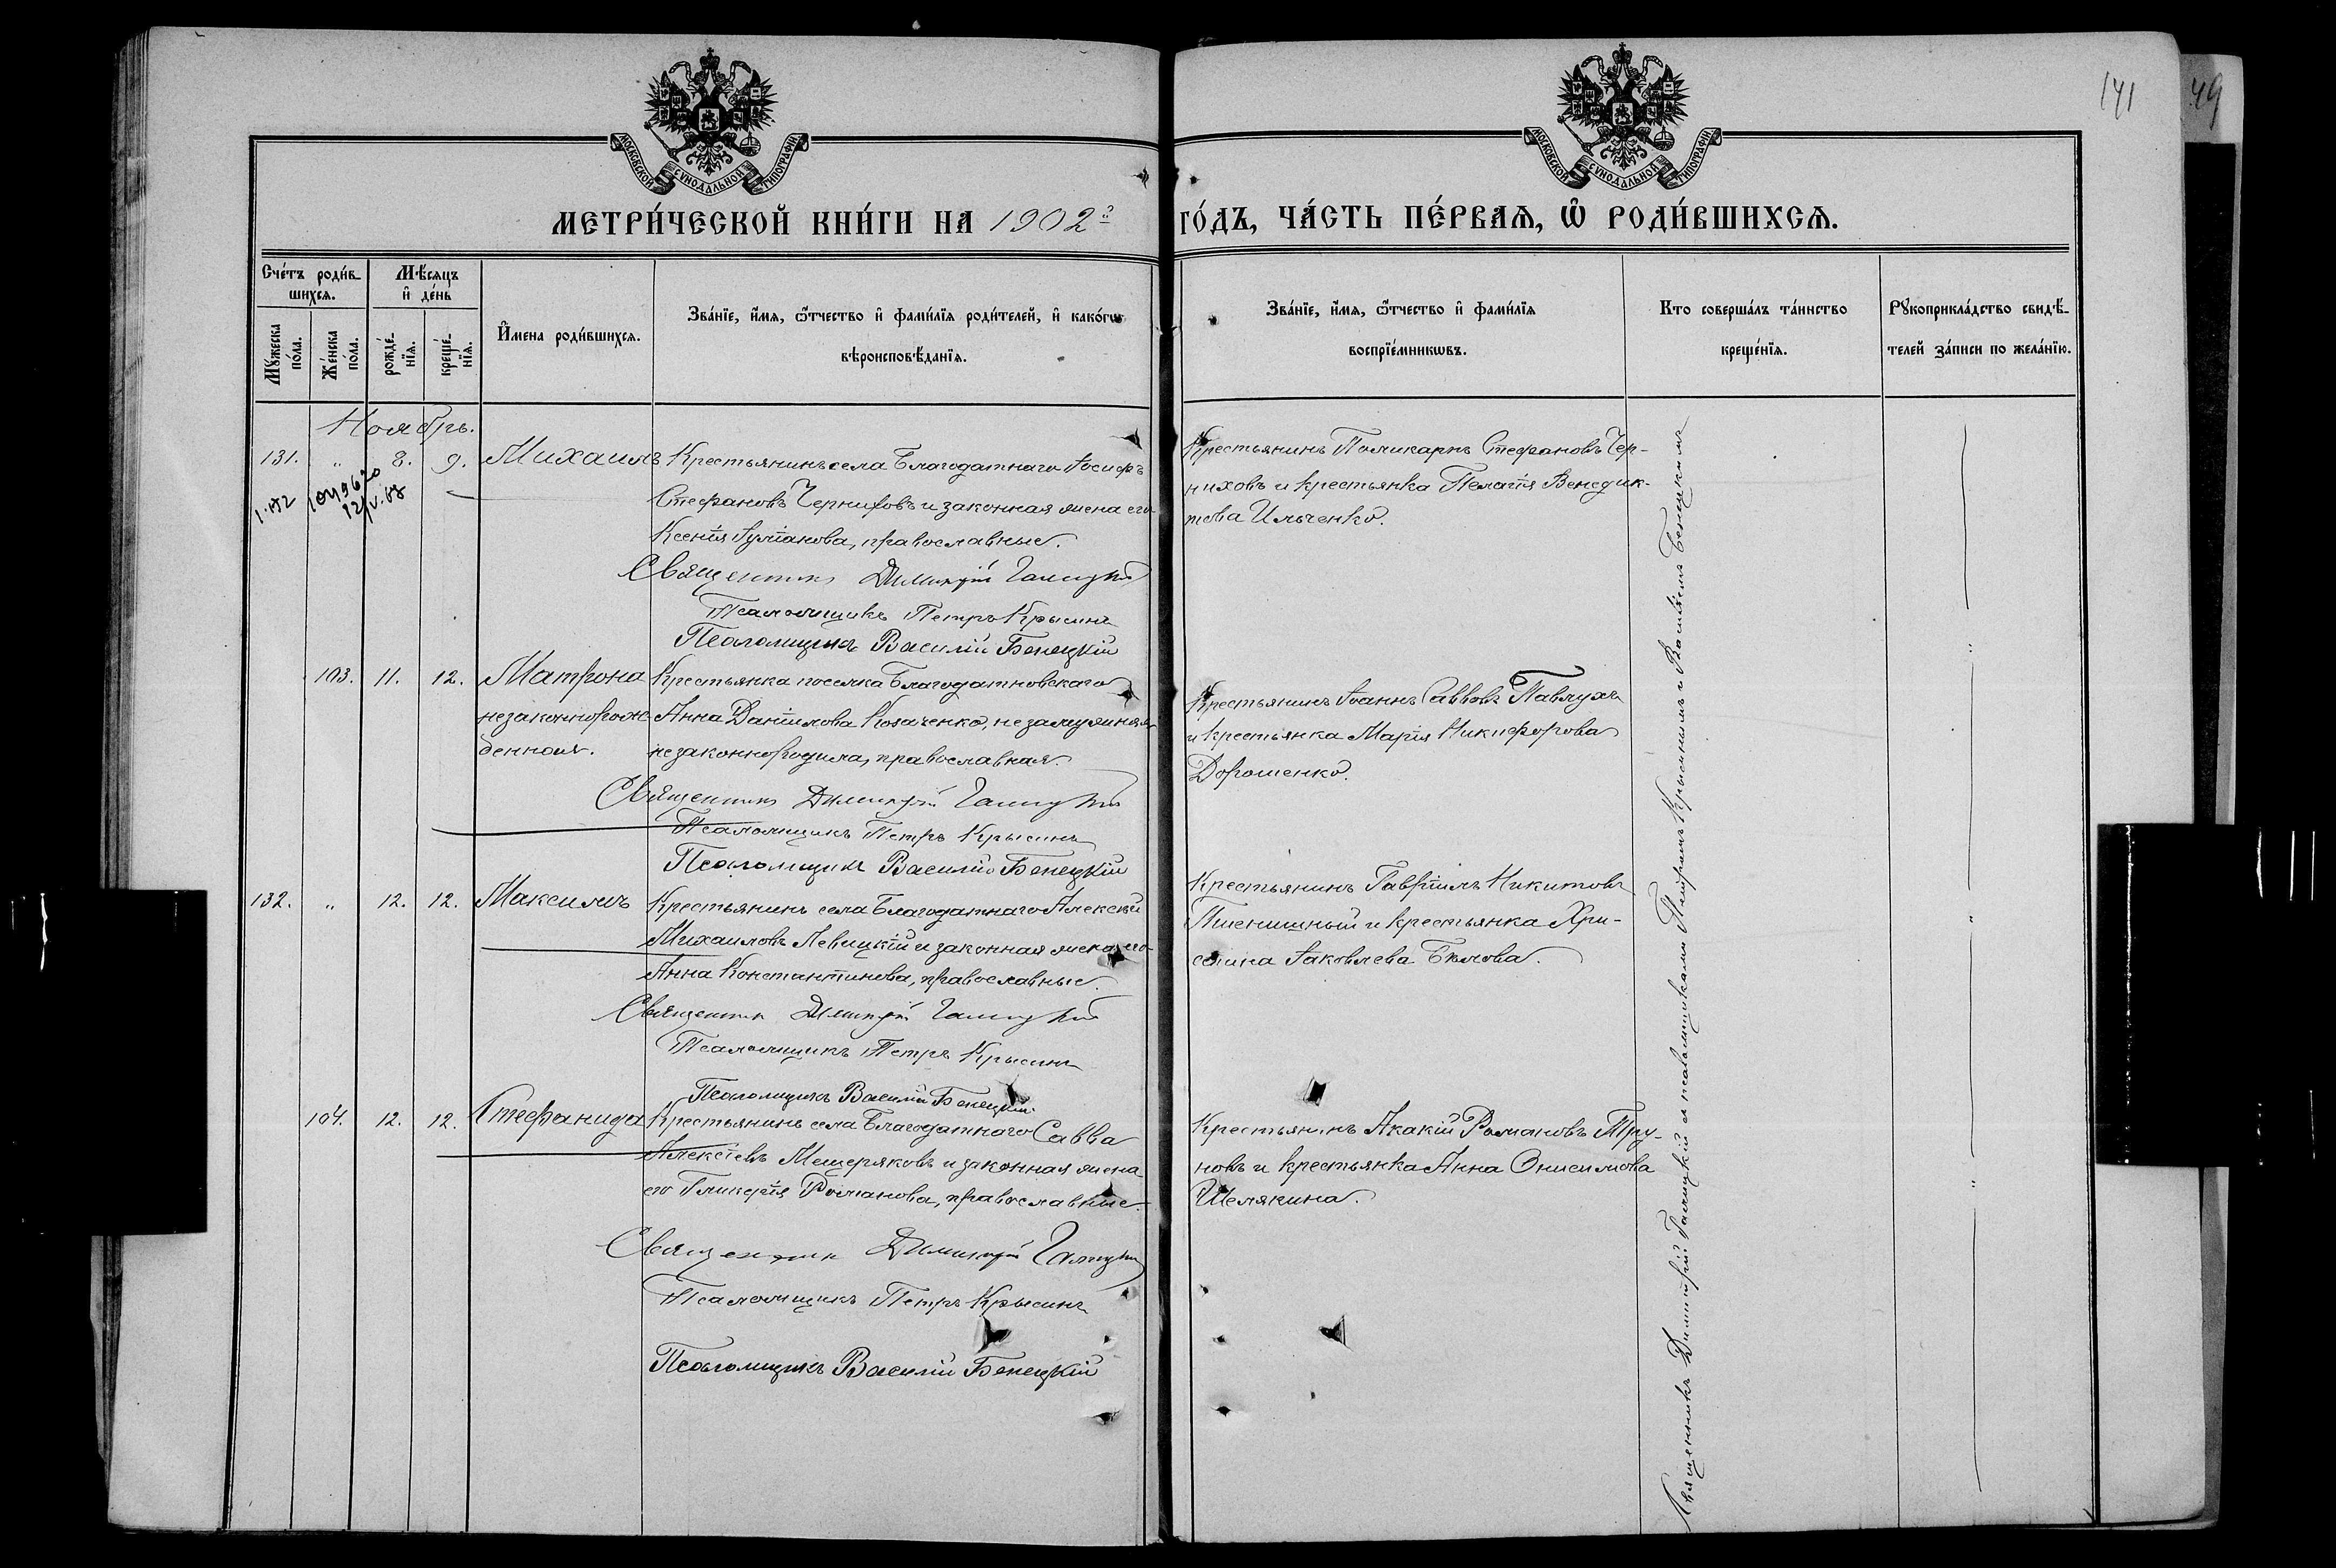 141
49
МОСКОВСКОЙ СѴНОДАЛЬНОЙ ТИПОГРАФІИ
МОСКОВСКОЙ СѴНОДАЛЬНОЙ ТИПОГРАФІИ
МЕТРИ́ЧЕСКОЙ КНИ́ГИ НА 1902 г
ГО́ДЪ, ЧА́СТЬ ПЕ́РВАѦ, Ѿ РОДИ́ВШИХСѦ.
Сче́тъ роди́в-
шихсѧ.
Мꙋжеска
по́ла.
Же́нска
по́ла.
Мѣ́сѧцъ
и҆ де́нь
рожде́-
нїѧ.
креще́-
нїѧ.
И҆мена роди́вшихсѧ.
Зва́нїе, и҆́мѧ, ѻ҆́тчество и҆ фами́лїѧ роди́телей, и҆ како́гѡ
вѣроисповѣ́данїѧ.
Зва́нїе, и҆́мѧ, ѻ҆́тчество и҆ фами́лїѧ
воспрїе́мникѡвъ.
Кто соверша́лъ та́инство
креще́нїѧ.
Рꙋкоприкла́дство свидѣ́-
телей за́писи по жела́нїю.
Ноябрь.
131. " 8. 9. Михаилъ Крестьянинъ села Благодатнаго Іосифъ
Стефановъ Черниховъ и законная жена его
Ксенія Іуліанова, православные.
Священникъ Димитрій Галицкій
Псаломщикъ Петръ Крысинъ
Псаломщикъ Василій Бенецкій
Крестьянинъ Поликарпъ Стефановъ Чер-
ниховъ и крестьянка Пелагія Венедик-
това Ильченко.
103. 11. 12. Матрона Крестьянка поселка Благодатновскаго
незаконнорож- Анна Даніилова Козаченко, незамужняя
денная. незаконнородила, православная.
Священникъ Димитрій Галицкій
Псаломщикъ Петръ Крысинъ
Псаломщикъ Василій Бенецкій
Крестьянинъ Іоаннъ Саввовъ Павлухъ
и крестьянка Марія Никифорова
Дорошенко.
132. " 12. 12. Максимъ Крестьянинъ села Благодатнаго Алексѣй
Михаиловъ Левицкій и законная жена его
Анна Константинова, православные.
Священникъ Димитрій Галицкій
Псаломщикъ Петръ Крысинъ
Псаломщикъ Василій Бенецкій
Крестьянинъ Гавріилъ Никитовъ
Пшеничный и крестьянка Хри-
стина Іаковлева Бѣлова.
104. 12. 12. Стефанида Крестьянинъ села Благодатнаго Савва
Алексѣевъ Мещеряковъ и законная жена
его Гликерія Романова, православные.
Священникъ Димитрій Галицкій
Псаломщикъ Петръ Крысинъ
Псаломщикъ Василій Бенецкій
Крестьянинъ Акакій Романовъ Тру-
новъ и крестьянка Анна Онисимова
Шелякина.
Священникъ Димитрій Галицкій съ псаломщиками Петромъ Крысинымъ и Василіемъ Бенецкимъ